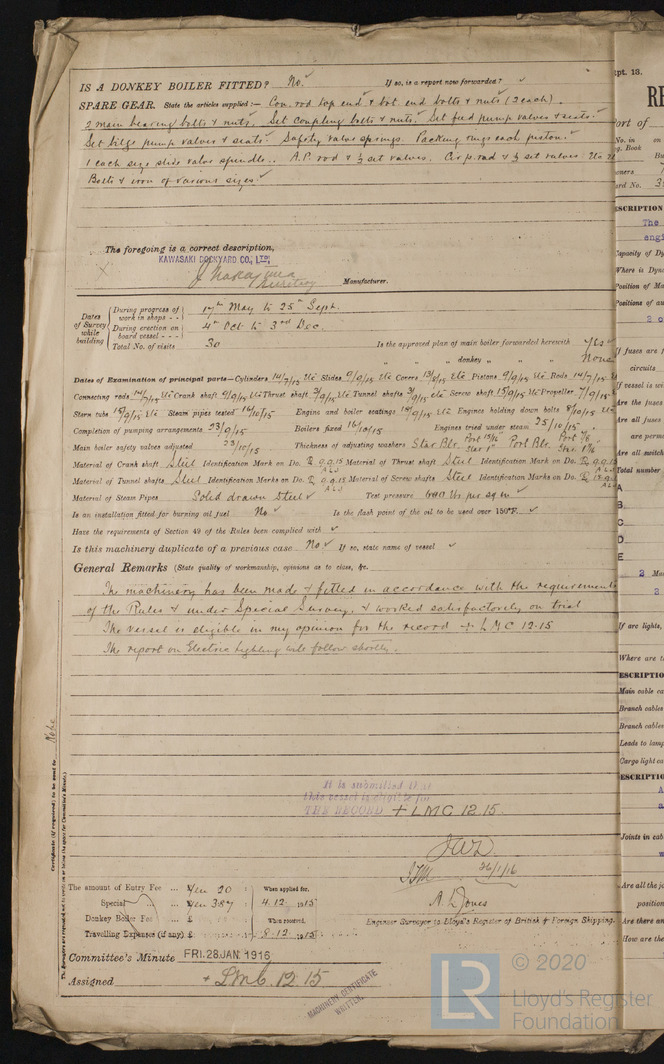 IS A DONKEY BOILER FITTED? No. ✓ If so, is a report now forwarded? ✓
SPARE GEAR. State the articles supplied:— Con. rod top end & bot. end bolts & nuts (2 each).
2 main bearing bolts & nuts. Set coupling bolts & nuts. Set feed pump valves & seats.
Set bilge pump valves & seats. Safety valve springs. Packing rings each piston.
1 each size slide valve spindle. A.P. rod & ½ set valves. Cir. p. rod & ½ set valves.
Bolts & iron of various sizes ✓
The foregoing is a correct description,
KAWASAKI DOCKYARD CO., LTD.
Manufacturer.
Dates of Survey while building
During progress of work in shops - - 17th May to 25th Sept.
During erection on board vessel - - - 4th Oct. to 3rd Dec.
Total No. of visits 30 Is the approved plan of main boiler forwarded herewith Yes ✓
" " " donkey " " " None
Dates of Examination of principal parts—Cylinders 14/7/15 Etc Slides 9/9/15 Etc Covers 13/8/15 Etc Pistons 9/9/15 Etc Rods 14/7/15
Connecting rods 14/7/15 Etc Crank shaft 9/9/15 Etc Thrust shaft 3/9/15 Etc Tunnel shafts 3/9/15 Etc Screw shaft 15/9/15 Etc Propeller 7/9/15
Stern tube 15/9/15 Etc Steam pipes tested 16/10/15 Engine and boiler seatings 14/9/15 Etc Engines holding down bolts 8/10/15
Completion of pumping arrangements 23/9/15 Boilers fixed 16/10/15 Engines tried under steam 25/10/15
Main boiler safety valves adjusted 23/10/15 Thickness of adjusting washers Star Blr. Port Blr.
Material of Crank shaft Steel Identification Mark on Do. 9.9.15 A.L.J Material of Thrust shaft Steel Identification Mark on Do. 9.9.15 A.L.J
Material of Tunnel shafts Steel Identification Marks on Do. 9.9.15 A.L.J Material of Screw shafts Steel Identification Marks on Do.
Material of Steam Pipes Solid drawn Steel ✓ Test pressure 600 lbs per sq in ✓
Is an installation fitted for burning oil fuel No ✓ Is the flash point of the oil to be used over 150°F. ✓
Have the requirements of Section 49 of the Rules been complied with ✓
Is this machinery duplicate of a previous case No ✓ If so, state name of vessel ✓
General Remarks (State quality of workmanship, opinions as to class, &c.
The machinery has been made & fitted in accordance with the requirements
of the Rules & under Special Survey, & worked satisfactorily on trial
The vessel is eligible in my opinion for the record + LMC 12.15
The report on Electric Lighting will follow shortly.
It is submitted that
this vessel is eligible for
THE RECORD + LMC 12.15.
26/1/16
The amount of Entry Fee ... Yen 20 When applied for,
Special ... Yen 387 4.12.1915
Donkey Boiler Fee ... £ When received,
Travelling Expenses (if any) £ 8.12.1915
A. L. Jones
Engineer Surveyor to Lloyd's Register of British & Foreign Shipping.
Committee's Minute FRI. 28 JAN. 1916
Assigned + LMC 12.15
MACHINERY CERTIFICATE WRITTEN.
Certificate (if required) to be sent to Kobe
© 2020
LR
Lloyd's Register
Foundation